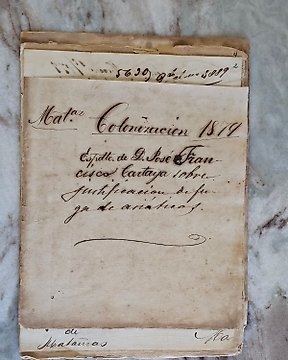 5639
Matas Colonizacion 1879
Espdte. de D. José Fran-
cisco Cartaya sobre
justificacion de fu-
ga de asiáticos.
de
Matanzas